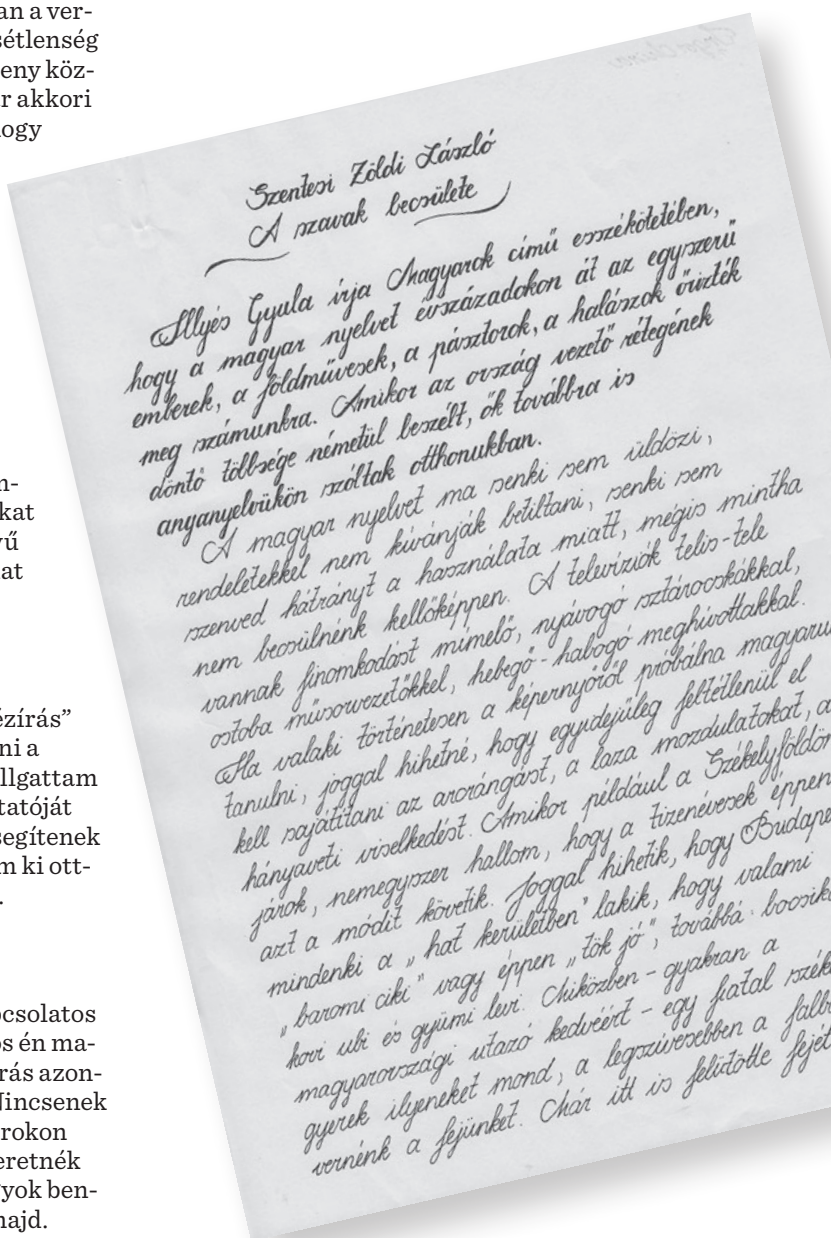 an a ver-
sétlenség
eny köz-
r akkori
ogy
n-
kat
yű
at
ézírás”
ni a
llgattam
tatóját
segítenek
m ki ott-
.
pcsolatos
os én ma-
rás azon-
Nincsenek
rokon
eretnék
gyok ben-
najd.
Szentesi Zöldi László
A szavak becsülete
Illyés Gyula írja Magyarok című esszékötetében,
hogy a magyar nyelvet évszázadokon át az egyszerű
emberek, a földművesek, a pásztorok, a halászok őrizték
meg számunkra. Amikor az ország vezető rétegének
döntő többsége németül beszélt, ők továbbra is
anyanyelvükön szóltak otthonukban.
A magyar nyelvet ma senki sem üldözi,
rendeletekkel nem kívánják betiltani, senki sem
szenved hátrányt a használata miatt, mégis mintha
nem becsülnénk kellőképpen. A televíziók telis-tele
vannak finomkodást mímelő, nyávogó sztárocskákkal,
ostoba műsorvezetőkkel, hebegő-habogó meghívottakkal.
Ha valaki történetesen a képernyőről próbálna magyarul
tanulni, joggal hihetné, hogy egyidejűleg feltétlenül el
kell sajátítani az arorángást, a laza mozdulatokat, a
hányaveti viselkedést. Amikor például a Székelyföldön
járok, nemegyszer hallom, hogy a tizenévesek éppen
azt a módit követik. Joggal hihetik, hogy Budape
mindenki a „hat kerületben” lakik, hogy valami
„baromi ciki” vagy éppen „tök jó”, továbbá: bocsika
kovi ubi és gyümi levi. Miközben – gyakran a
magyarországi utazó kedvéért – egy fiatal széke
gyerek ilyeneket mond, a legszívesebben a falba
vernénk a fejünket. Már itt is felütötte fejét